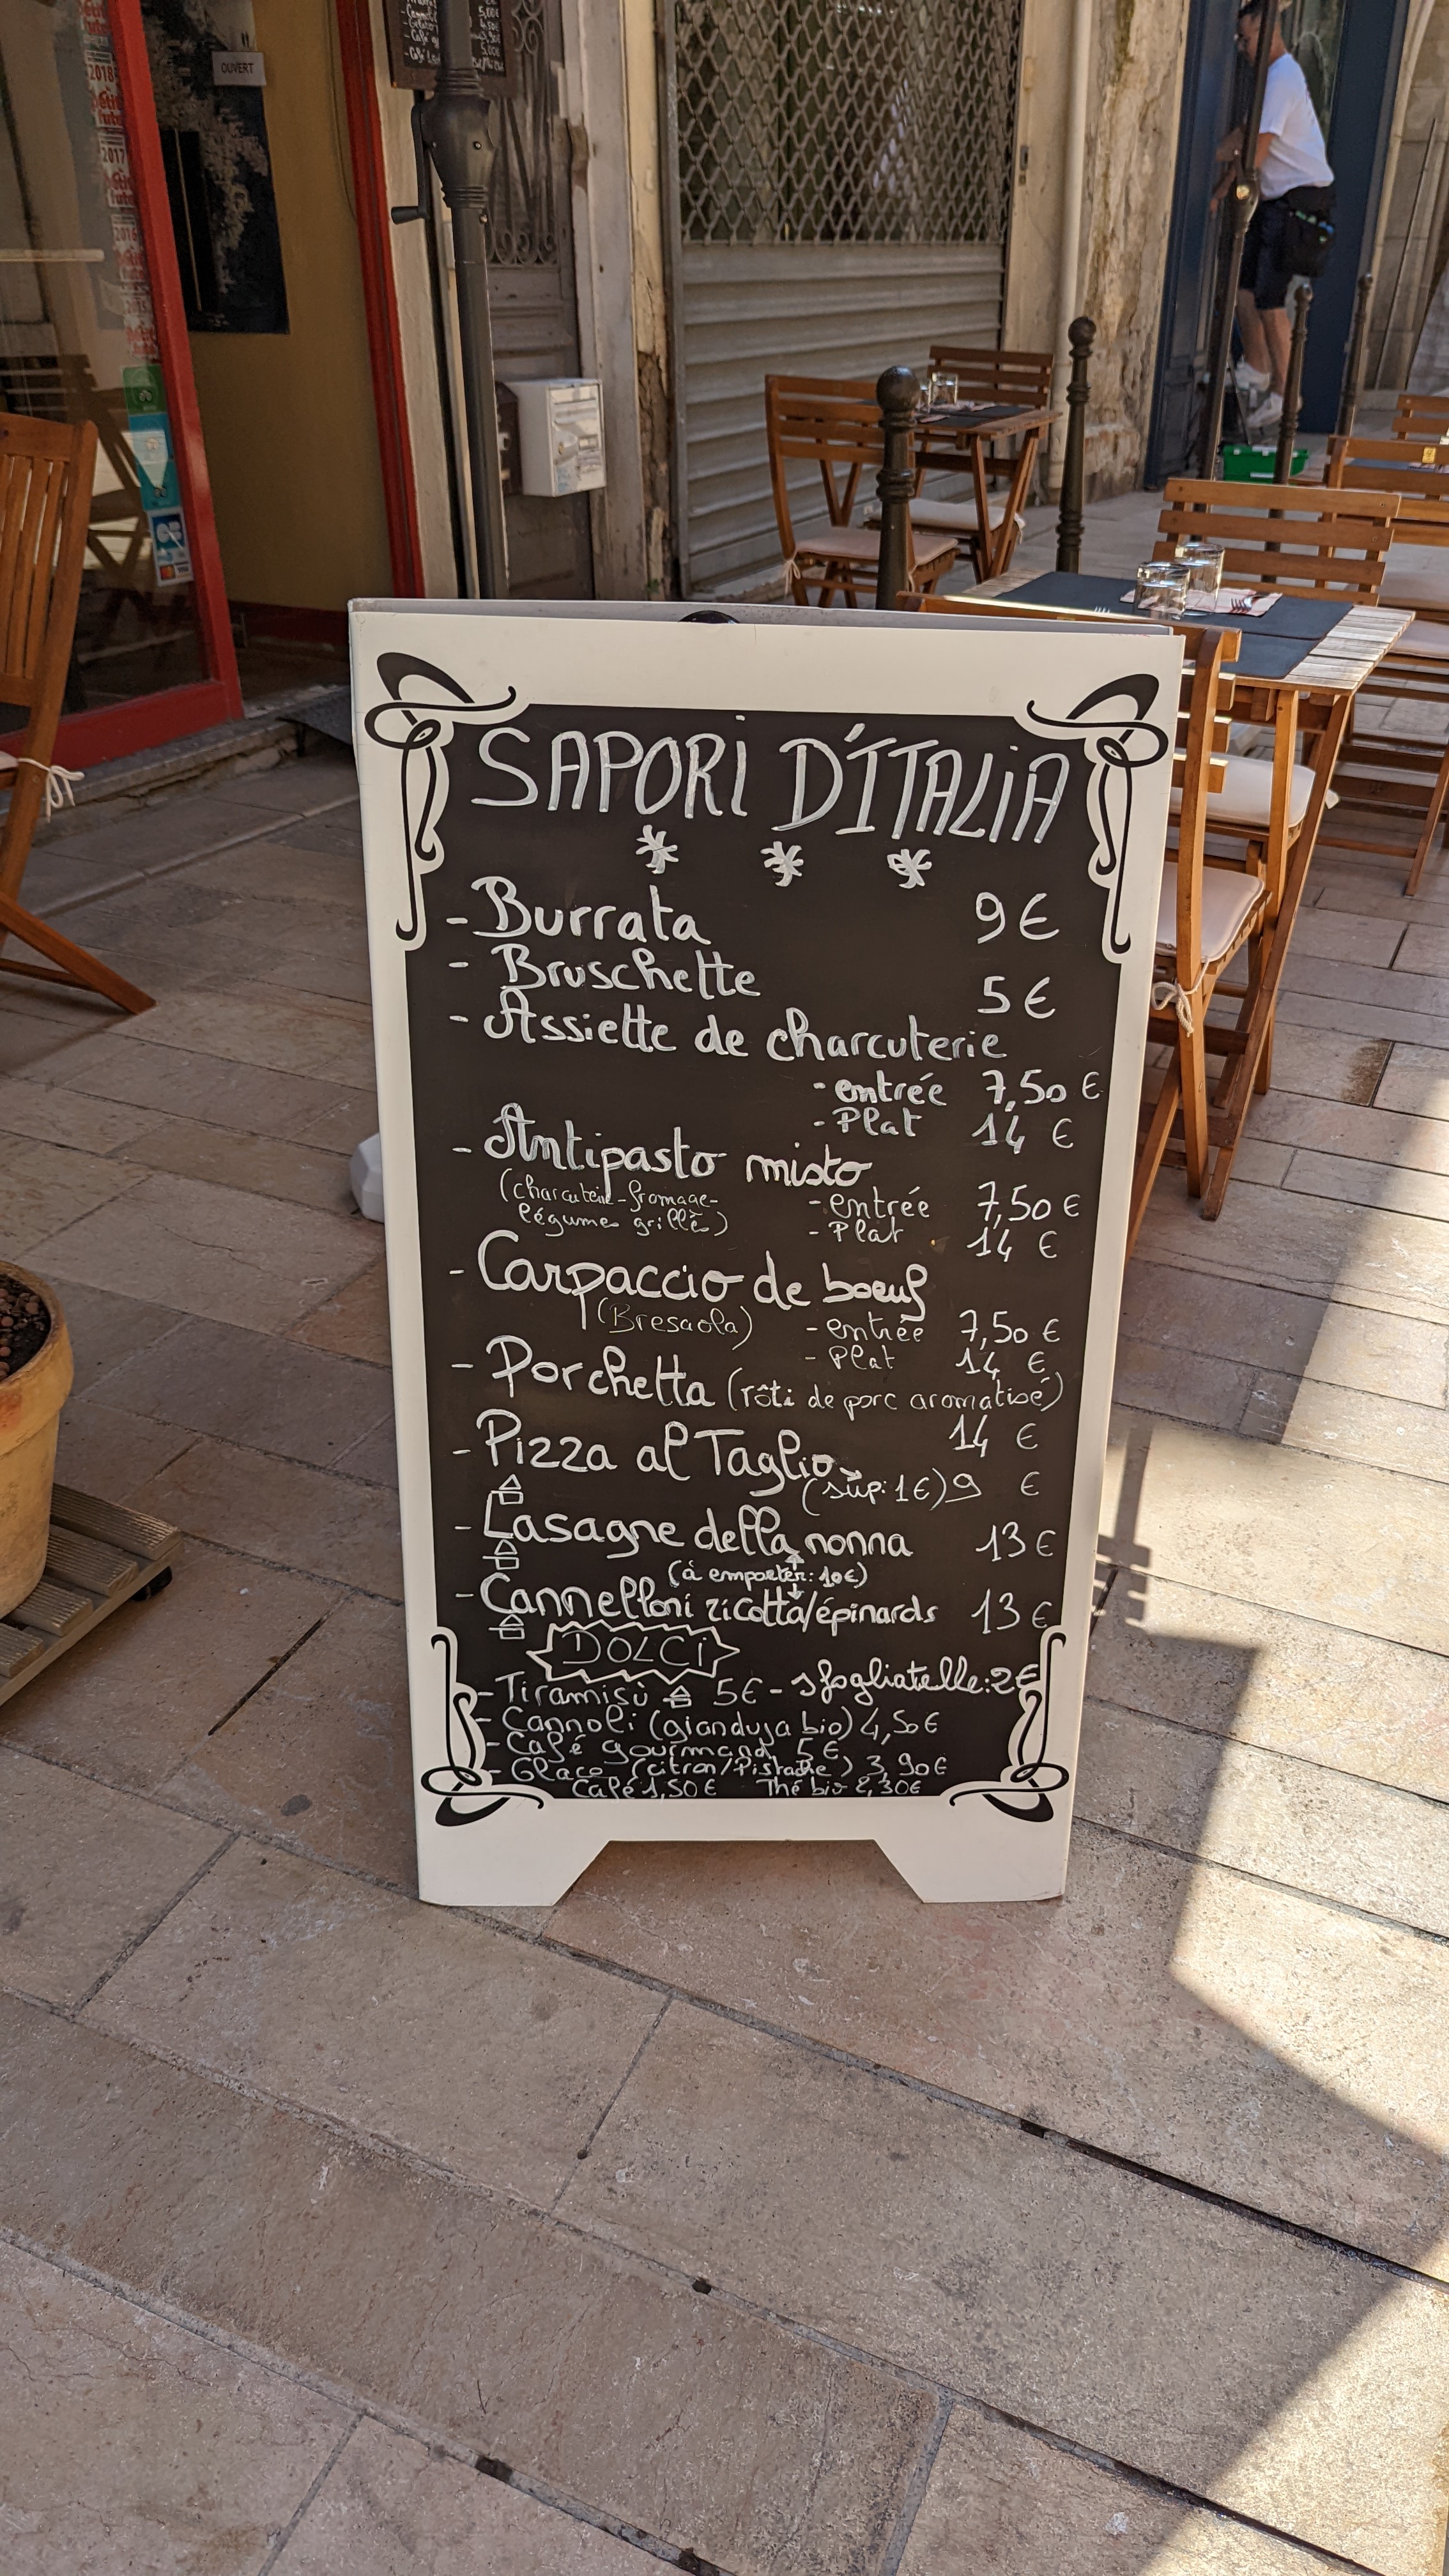 OUVERT
2018
2017
2016
SAPORI D'ITALIA
* * *
- Burrata 9 €
- Bruschette 5 €
- Assiette de charcuterie
- entrée 7,50 €
- Plat 14 €
- Antipasto misto
(charcuterie-fromage- - entrée 7,50 €
légume grillè) - Plat 14 €
- Carpaccio de boeuf
(Bresaola) - entrée 7,50 €
- Plat 14 €
- Porchetta (rôti de porc aromatisé)
14 €
- Pizza al Taglio (sup: 1€) 9 €
- Lasagne della nonna 13 €
(à emporter: 10€)
- Cannelloni ricotta/épinards 13 €
DOLCI
- Tiramisù 5€ - sfogliatelle: 2€
- Cannoli (gianduja bio) 4,50€
- Café gourmand 5€
- Glace (citron/Pistache) 3,90€
Café 1,50€ Thé bio 2,30€